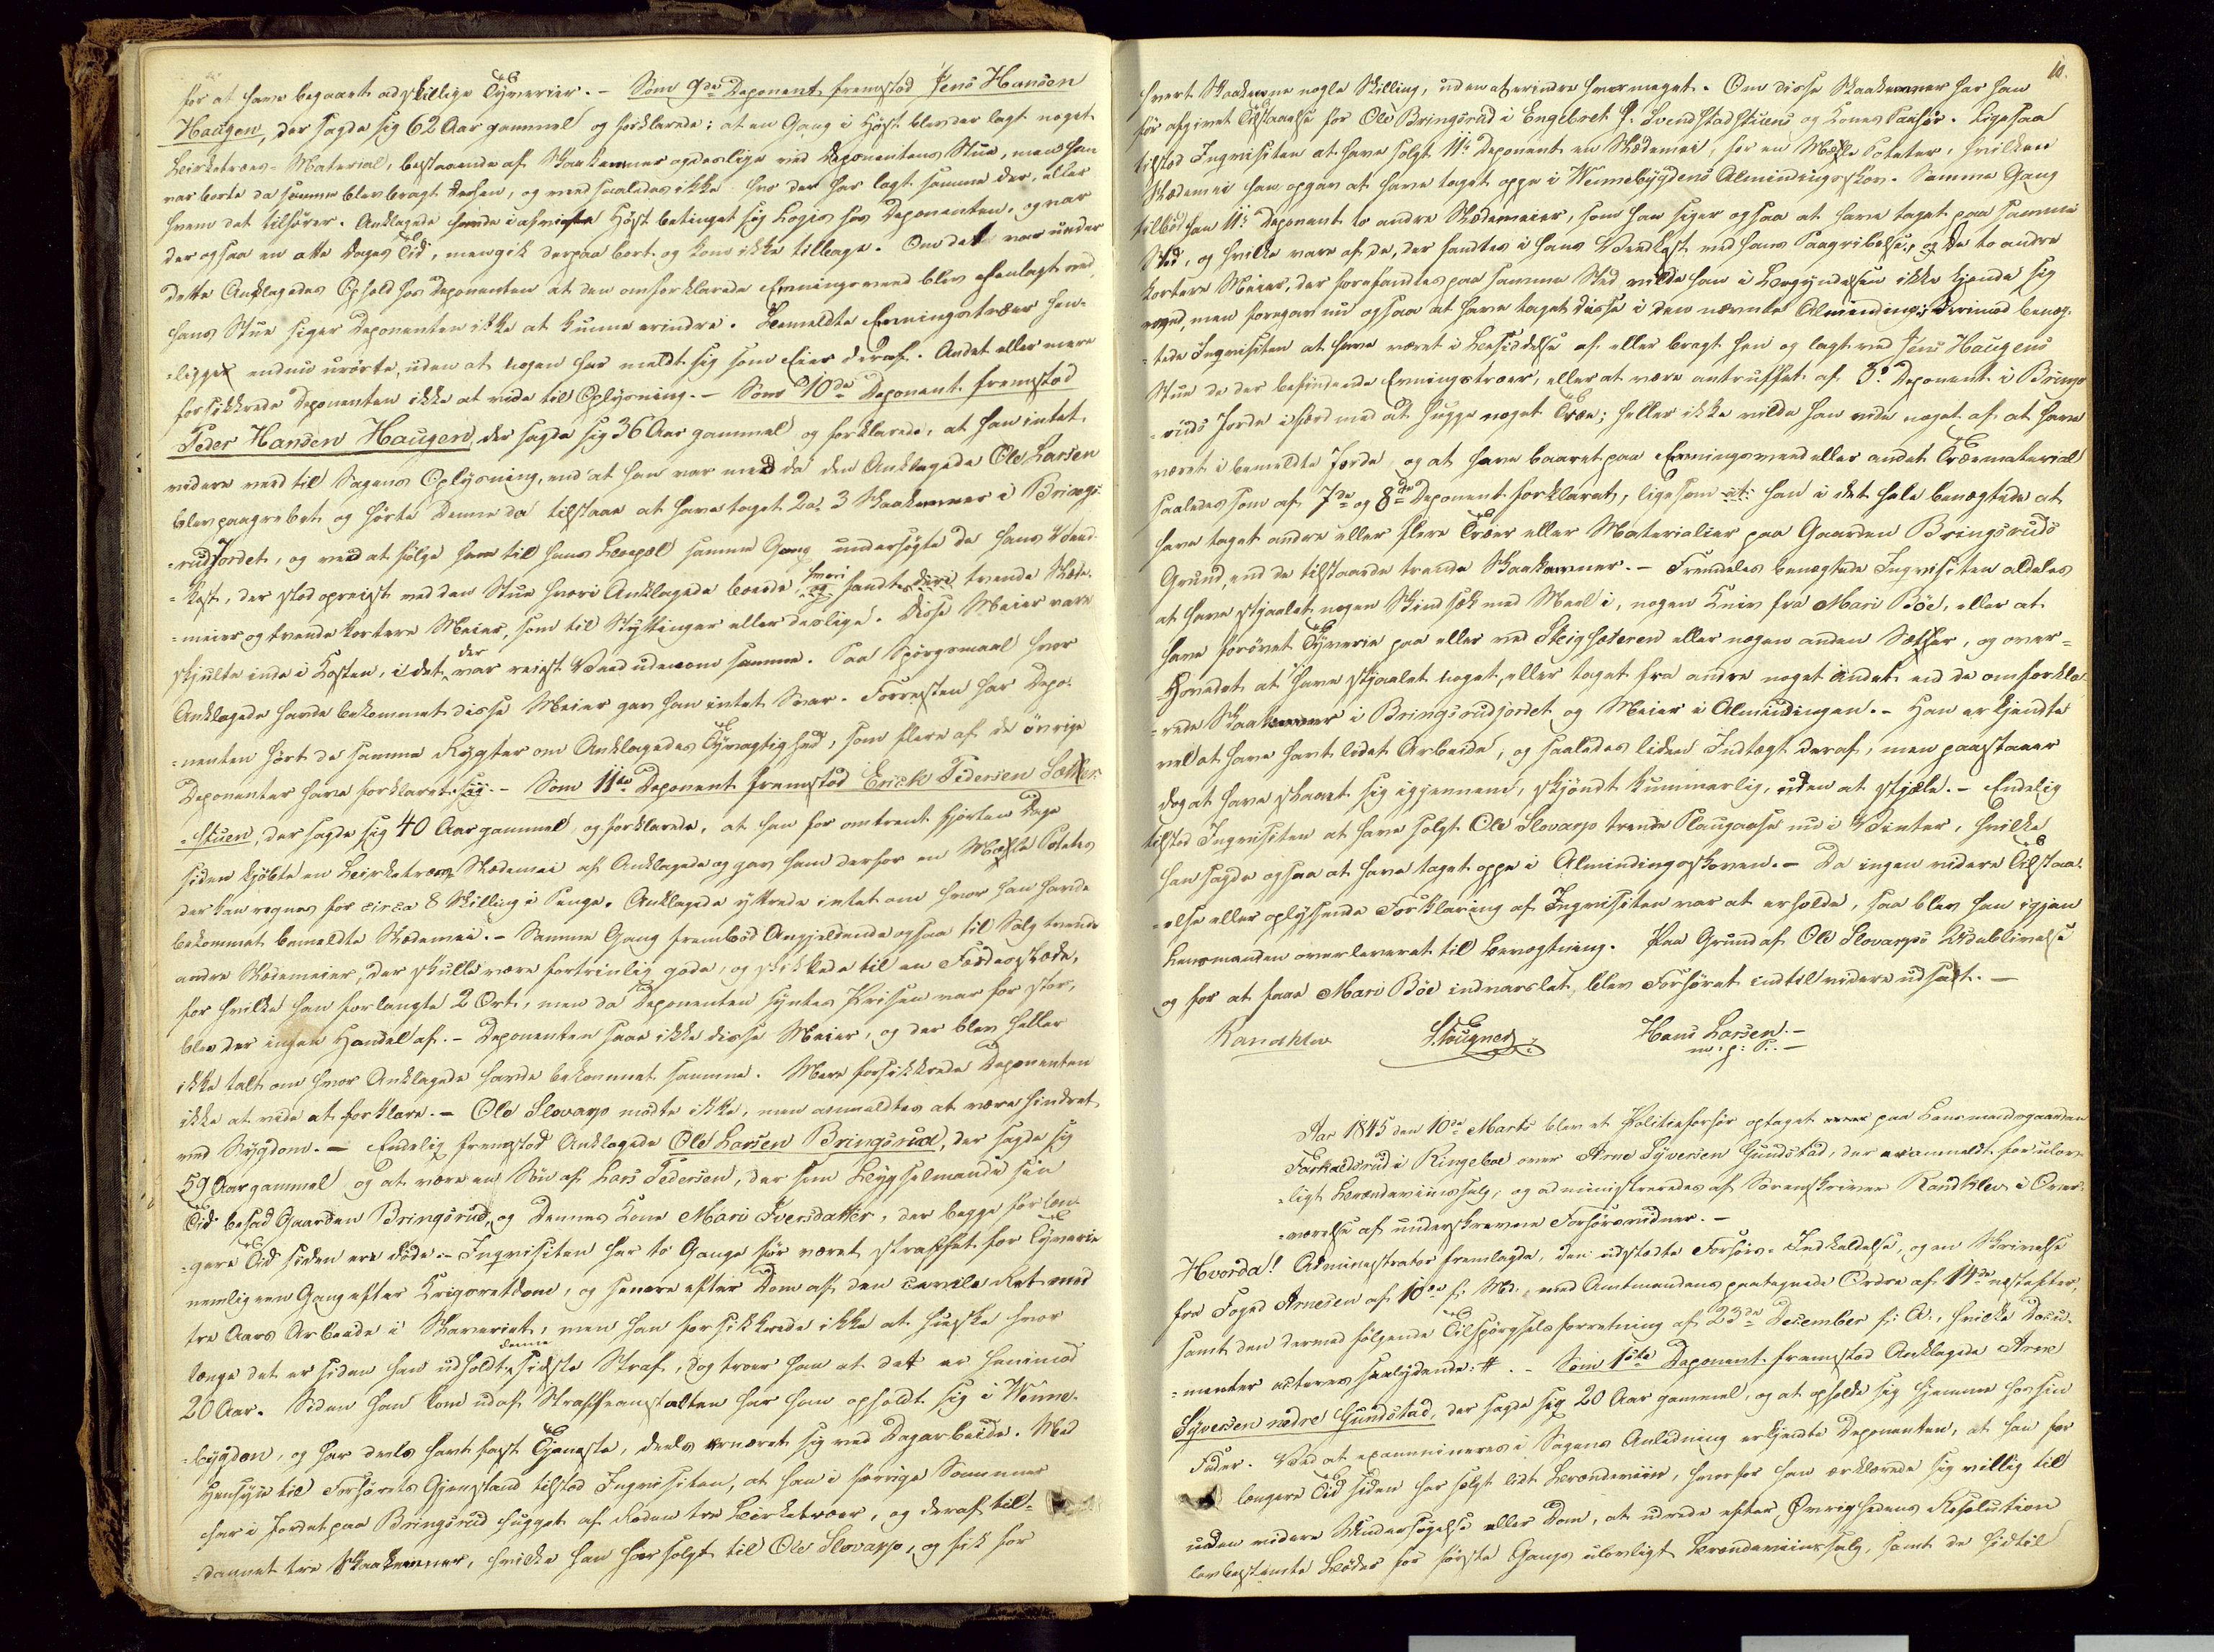 for at have begaaet adskillige Tyverier. – Som 9de Deponent fremstod Jens Hansen
Haugen, der sagde sig 62 Aar gammel og forklarede: at en Gang i Høst blev der lagt noget
Birketræes-Material, bestaaende af Skaakemner og deslige ved Deponentens Stue, men han
var borte da samme blev bragt derhen, og veed saaledes ikke hvo der har lagt samme der, eller
hvem det tilhører. Anklagede havde i afvigte Høst betinget sig Logis hos Deponenten, og var
der ogsaa en otte Dages Tid, men gik derpaa bort og kom ikke tilbage. Om det var under
dette Anklagedes Ophold hos Deponenten at den omforklarede Emningsveed blev henlagt ved
hans Stue siger Deponenten ikke at kunne erindre. Bemeldte Emningstræer hen-
=ligger endnu urørte, uden at nogen har meldt sig som Eier deraf. Andet eller mere
forsikkrede Deponenten ikke at vide til Oplysning. – Som 10de Deponent fremstod
Peder Hansen Haugen, der sagde sig 36 Aar gammel og forklarede, at han intet
videre veed til Sagens Oplysning, end at han var med da den Anklagede Ole Larsen
blev paagrebet og hørte denne da tilstaae at have taget 2 a 3 Skaakemner i Brings-
=rudjordet, og ved at følge ham til hans Bopæl samme Gang undersøgte de hans Veed-
=kast, der stod opreist ved den Stue hvori Anklagede boede, hvori og fandtes deri tvende Slæde-
=meier og tvende kortere Meier, som til Skyttinger eller deslige. Disse Meier vare
skjulte inde i Kasten, idet der var reist Veed udenom samme. Paa Spørgsmaal hvor
Anklagede havde bekommet disse Meier gav han intet Svar. Forresten har Depo-
=nenten hørt de samme Rygter om Anklagedes Tyvagtighed, som flere af de øvrige
Deponenter have forklaret sig. – Som 11te Deponent fremstod Erick Pedersen Sætter-
=stuen, der sagde sig 40 Aar gammel og forklarede, at han for omtrent fjorten Dage
siden kjøbte en Birketræes Slædemei af Anklagede og gav ham derfor en Mæle Potetes
der kan regnes for circa 8 Skilling i Penge. Anklagede yttrede intet om hvor han havde
bekommet bemeldte Slædemei. – Samme Gang frembød Angjeldende ogsaa til Salg tvende
andre Slædemeier, der skulle være fortrinlig gode, og skikkede til en Færdesslæde,
for hvilke han forlangte 2 Ort, men da Deponenten syntes Prisen var for stor,
blev der ingen Handel af. – Deponenten saae ikke disse Meier, og der blev heller
ikke talt om hvor Anklagede havde bekommet samme. Mere forsikkrede Deponenten
ikke at vide at forklare. – Ole Slovarp mødte ikke, men anmeldtes at være hindret
ved Sygdom. – Endelig fremstod Anklagede Ole Larsen Bringsrud, der sagde sig
59 Aar gammel og at være en Søn af Lars Pedersen, der som Bygselmand i sin
Tid besad Gaarden Bringsrud, og dennes Kone Mari Iversdatter, der begge for læn-
=gere Tid siden ere døde. – Inqvisiten har to Gange før været straffet for Tyverie
nemlig en Gang efter Krigsretdom, og senere efter Dom af den civile Ret med
tre Aars Arbeide i Slaveriet, men han forsikkrede ikke at huske hvor
længe det er siden han udholdt denne sidste Straf, dog troer han at det er henimod
20 Aar. Siden han kom ud af Straffeanstalten har han opholdt sig i Venne-
=bygden, og har deels havt fast Tjeneste, deels ernæret sig ved Dagarbeide. Med
Hensyn til Forhørets Gjenstand tilstod Inqvisiten, at han i forrige Sommer
har i Jordet paa Bringsrud hugget af Roden tre Birketræer, og deraf til-
=dannet tre Skaakemner, hvilke han har solgt til Ole Slovarp, og fik for
10.
hvert Skaakemne nogle Skilling, uden at erindre hvormeget. Om disse Skaakemner har han
før afgivet Tilstaaelse for Ole Bringsrud i Engebret P. Svendstadstuens og Kones Paahør. Ligesaa
tilstod Inqvisiten at have solgt 11te Deponent en Slædemei, for en Mæle Poteter, hvilken
Slædemei han opgav at have taget oppe i Vennebygdens Almindingsskov. Samme Gang
tilbød han 11te Deponent to andre Slædemeier, som han siger ogsaa at have taget paa samme
Sted, og hvilke vare af de, der fandtes i hans Veedkast ved hans Paagribelse, og de to andre
kortere Meier, der forefandtes paa samme Sted vilde han i Begyndelsen ikke kjende sig
ved, men foregav nu ogsaa at have taget disse i den nævnte Alminding; derimod benæg-
=tede Inqvisiten at have været i Besiddelse af eller bragt hen og lagt ved Jens Haugens
Stue de der befindende Emningstræer, eller at være antruffet af 3de Deponent i Brings-
=ruds Jorde ifærd med at hugge noget Træe; heller ikke vilde han vide noget af at have
været i bemeldte Jorde og at have baaret paa Emningsveed eller andet Træematerial
saaledes som af 7de og 8de Deponent forklaret, ligesom at han i det hele benægtede at
have taget andre eller flere Træer eller Materialier paa Gaarden Bringsruds
Grund, end de tilstaaede trende Skaakemner. – Fremdeles benægtede Inqvisiten aldeles
at have stjaalet nogen Skindsæk med Meel i, nogen Kniv fra Mari Bøe, eller at
have forøvet Tyverie paa eller ved Steigsæteren eller nogen anden Sæther, og over-
=hovedet at have stjaalet noget, eller taget fra andre noget andet end de omforkla-
=rede Skaakemner i Bringsrudjordet og Meier i Almindingen. – Han erkjendte
vel at have havt lidet Arbeide, og saaledes liden Indtægt deraf, men paastaaer
dog at have skaaret sig igjennem, skjøndt kummerlig, uden at stjæle. – Endelig
tilstod Inqvisiten at have solgt Ole Slovarp trende Plougaase nu i Vinter, hvilke
han sagde ogsaa at have taget oppe i Almindingsskoven. – Da ingen videre Tilstaa-
=else eller oplysende Forklaring af Inqvisiten var at erholde, saa blev han igjen
Lensmanden overleveret til Bevogtning. Paa Grund af Ole Slovarps Udeblivelse
og for at faae Mari Bøe indvarslet, blev Forhøret indtil videre udsat. –
Randklev S. Tougner Hans Larsen. –
m: p: P.: –
Aar 1845 den 10de Marts blev et Politieforhør optaget paa Lensmandsgaarden
i Ringeboe over Arne Syversen Gundstad, der er anmeldt for ulov-
=ligt Brændeviinssalg, og administreredes af Sorenskriver Randklev i Over-
=værelse af underskrevne Forhørsvidner. –
Hvorda! Administrator fremlagde, den udstedte Forhørs-Indkaldelse, og en Skrivelse
fra Foged Arnesen af 10de f: Md., med Amtmandens paategnede Ordre af 14de næstefter,
samt den dermed følgende Tilspørgselsforretning af 23de December f: A., hvilke Docu-
=menter acteres saalydende: #. – Som 1ste Deponent fremstod Anklagede Arne
Syversen nedre Gundstad, der sagde sig 20 Aar gammel, og at opholde sig hjemme hos sin
Fader. Ved at examineres i Sagens Anledning erkjendte Deponenten, at han for
længere Tid siden har solgt lidt Brændeviin, hvorfor han erklærede sig villig til
uden videre Undersøgelse eller Dom, at udrede efter Øvrighedens Resolution
lovbestemte Bøder for første Gangs ulovligt Brændeviinssalg, samt de hidtil